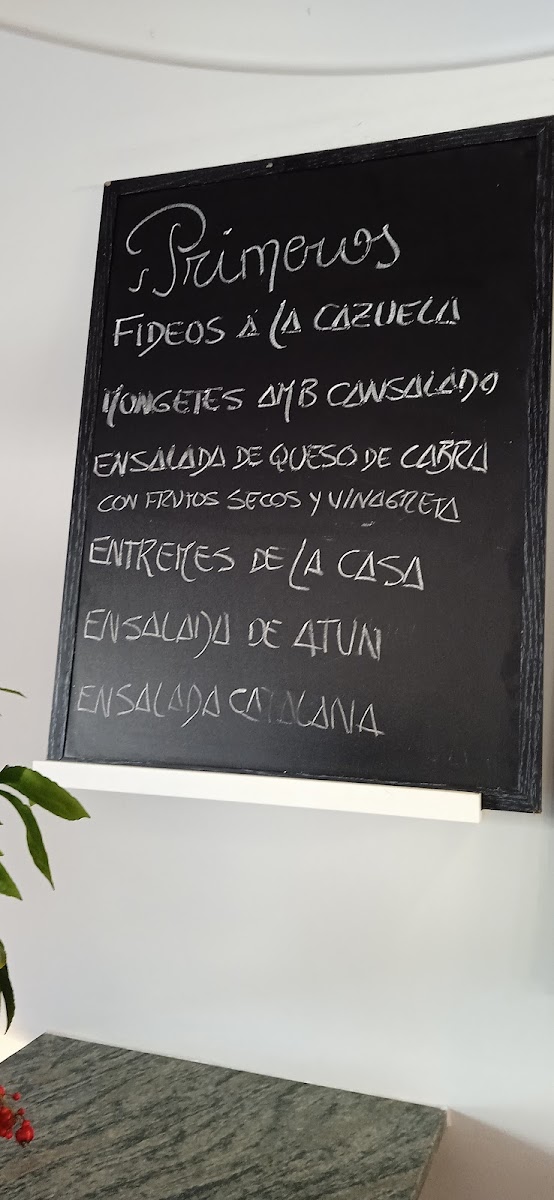 Primeros
FIDEOS A LA CAZUELA
MONGETES AMB CANSALADO
ENSALADA DE QUESO DE CABRA
CON FRUTOS SECOS Y VINAGRETA
ENTREMES DE LA CASA
ENSALADA DE ATUN
ENSALADA CATALANA